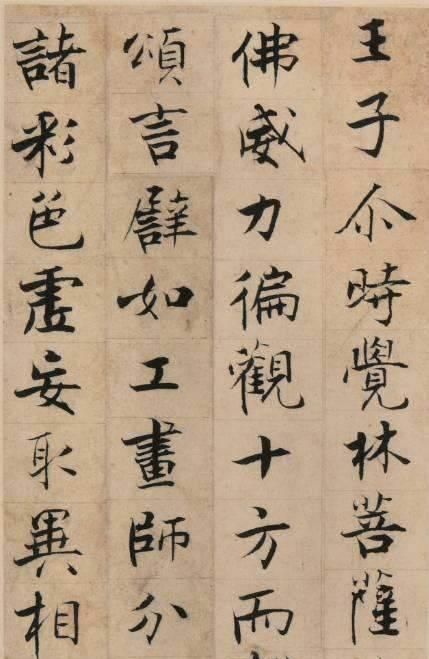 王子尒時覺林菩薩
佛威力徧觀十方而
頌言譬如工畫師分
諸彩色虛妄取異相